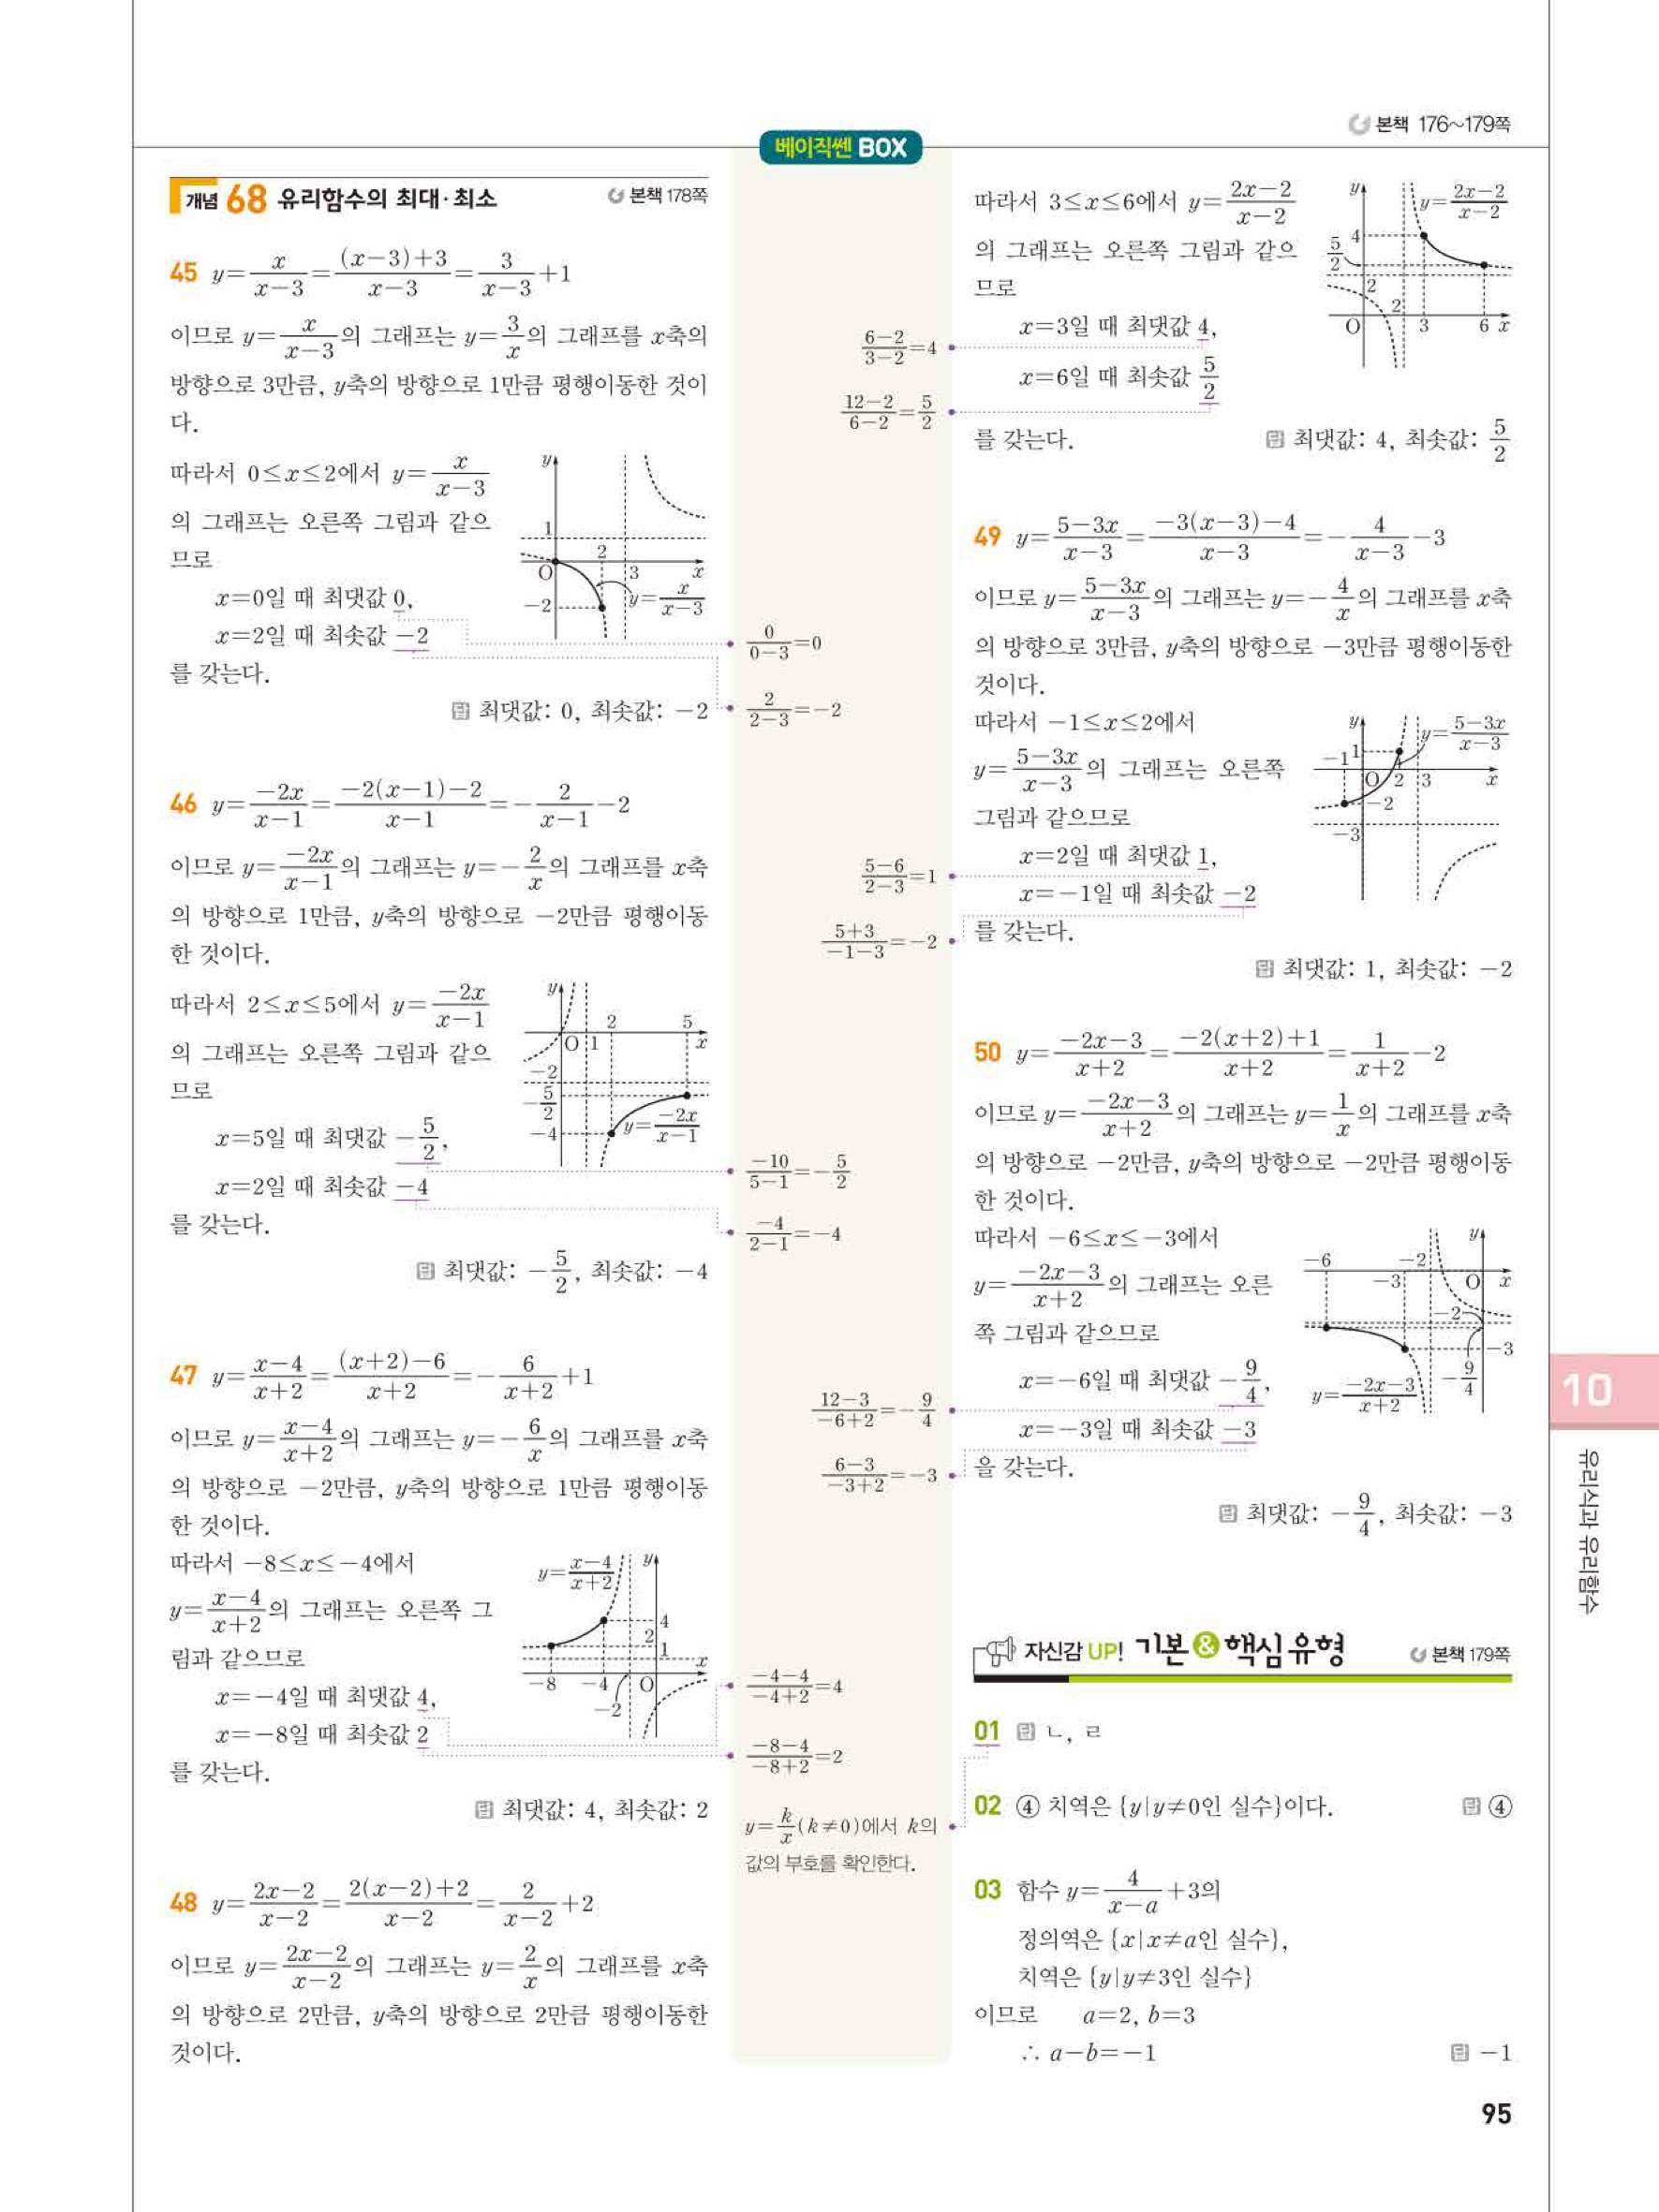 본책 176~179쪽
베이직쎈 BOX
개념 68 유리함수의 최대·최소 본책 178쪽
45 y=x/(x-3)=((x-3)+3)/(x-3)=3/(x-3)+1
이므로 y=x/(x-3)의 그래프는 y=3/x의 그래프를 x축의
방향으로 3만큼, y축의 방향으로 1만큼 평행이동한 것이
다.
따라서 0≤x≤2에서 y=x/(x-3)
의 그래프는 오른쪽 그림과 같으
므로
x=0일 때 최댓값 0,
x=2일 때 최솟값 -2
를 갖는다.
y
1
2
O
3
x
-2
y=x/(x-3)
답 최댓값: 0, 최솟값: -2
0/(0-3)=0
2/(2-3)=-2
46 y=-2x/(x-1)=(-2(x-1)-2)/(x-1)=-2/(x-1)-2
이므로 y=-2x/(x-1)의 그래프는 y=-2/x의 그래프를 x축
의 방향으로 1만큼, y축의 방향으로 -2만큼 평행이동
한 것이다.
따라서 2≤x≤5에서 y=-2x/(x-1)
의 그래프는 오른쪽 그림과 같으
므로
x=5일 때 최댓값 -5/2,
x=2일 때 최솟값 -4
를 갖는다.
y
2 5
O 1 x
-2
-5/2
-4
y=-2x/(x-1)
답 최댓값: -5/2, 최솟값: -4
-10/(5-1)=-5/2
-4/(2-1)=-4
47 y=(x-4)/(x+2)=((x+2)-6)/(x+2)=-6/(x+2)+1
이므로 y=(x-4)/(x+2)의 그래프는 y=-6/x의 그래프를 x축
의 방향으로 -2만큼, y축의 방향으로 1만큼 평행이동
한 것이다.
따라서 -8≤x≤-4에서
y=(x-4)/(x+2)의 그래프는 오른쪽 그
림과 같으므로
x=-4일 때 최댓값 4,
x=-8일 때 최솟값 2
를 갖는다.
y=(x-4)/(x+2)
y
4
2
1
x
-8 -4 O
-2
답 최댓값: 4, 최솟값: 2
(-4-4)/(-4+2)=4
(-8-4)/(-8+2)=2
48 y=(2x-2)/(x-2)=(2(x-2)+2)/(x-2)=2/(x-2)+2
이므로 y=(2x-2)/(x-2)의 그래프는 y=2/x의 그래프를 x축
의 방향으로 2만큼, y축의 방향으로 2만큼 평행이동한
것이다.
따라서 3≤x≤6에서 y=(2x-2)/(x-2)
의 그래프는 오른쪽 그림과 같으
므로
x=3일 때 최댓값 4,
x=6일 때 최솟값 5/2
를 갖는다.
y
y=(2x-2)/(x-2)
4
5/2
2
2
O 3 6 x
답 최댓값: 4, 최솟값: 5/2
(6-2)/(3-2)=4
(12-2)/(6-2)=5/2
49 y=(5-3x)/(x-3)=(-3(x-3)-4)/(x-3)=-4/(x-3)-3
이므로 y=(5-3x)/(x-3)의 그래프는 y=-4/x의 그래프를 x축
의 방향으로 3만큼, y축의 방향으로 -3만큼 평행이동한
것이다.
따라서 -1≤x≤2에서
y=(5-3x)/(x-3)의 그래프는 오른쪽
그림과 같으므로
x=2일 때 최댓값 1,
x=-1일 때 최솟값 -2
를 갖는다.
y
y=(5-3x)/(x-3)
-1 1
O 2 3 x
-2
-3
답 최댓값: 1, 최솟값: -2
(5-6)/(2-3)=1
(5+3)/(-1-3)=-2
50 y=(-2x-3)/(x+2)=(-2(x+2)+1)/(x+2)=1/(x+2)-2
이므로 y=(-2x-3)/(x+2)의 그래프는 y=1/x의 그래프를 x축
의 방향으로 -2만큼, y축의 방향으로 -2만큼 평행이동
한 것이다.
따라서 -6≤x≤-3에서
y=(-2x-3)/(x+2)의 그래프는 오른
쪽 그림과 같으므로
x=-6일 때 최댓값 -9/4,
x=-3일 때 최솟값 -3
을 갖는다.
y
-6 -2
-3 O x
-2
-3
-9/4
y=(-2x-3)/(x+2)
답 최댓값: -9/4, 최솟값: -3
(12-3)/(-6+2)=-9/4
(6-3)/(-3+2)=-3
자신감 UP! 기본 & 핵심 유형 본책 179쪽
01 답 ㄴ, ㄹ
y=k/x(k≠0)에서 k의
값의 부호를 확인한다.
02 ④ 치역은 {y|y≠0인 실수}이다. 답 ④
03 함수 y=4/(x-a)+3의
정의역은 {x|x≠a인 실수},
치역은 {y|y≠3인 실수}
이므로 a=2, b=3
∴ a-b=-1 답 -1
10
유리식과 유리함수
95